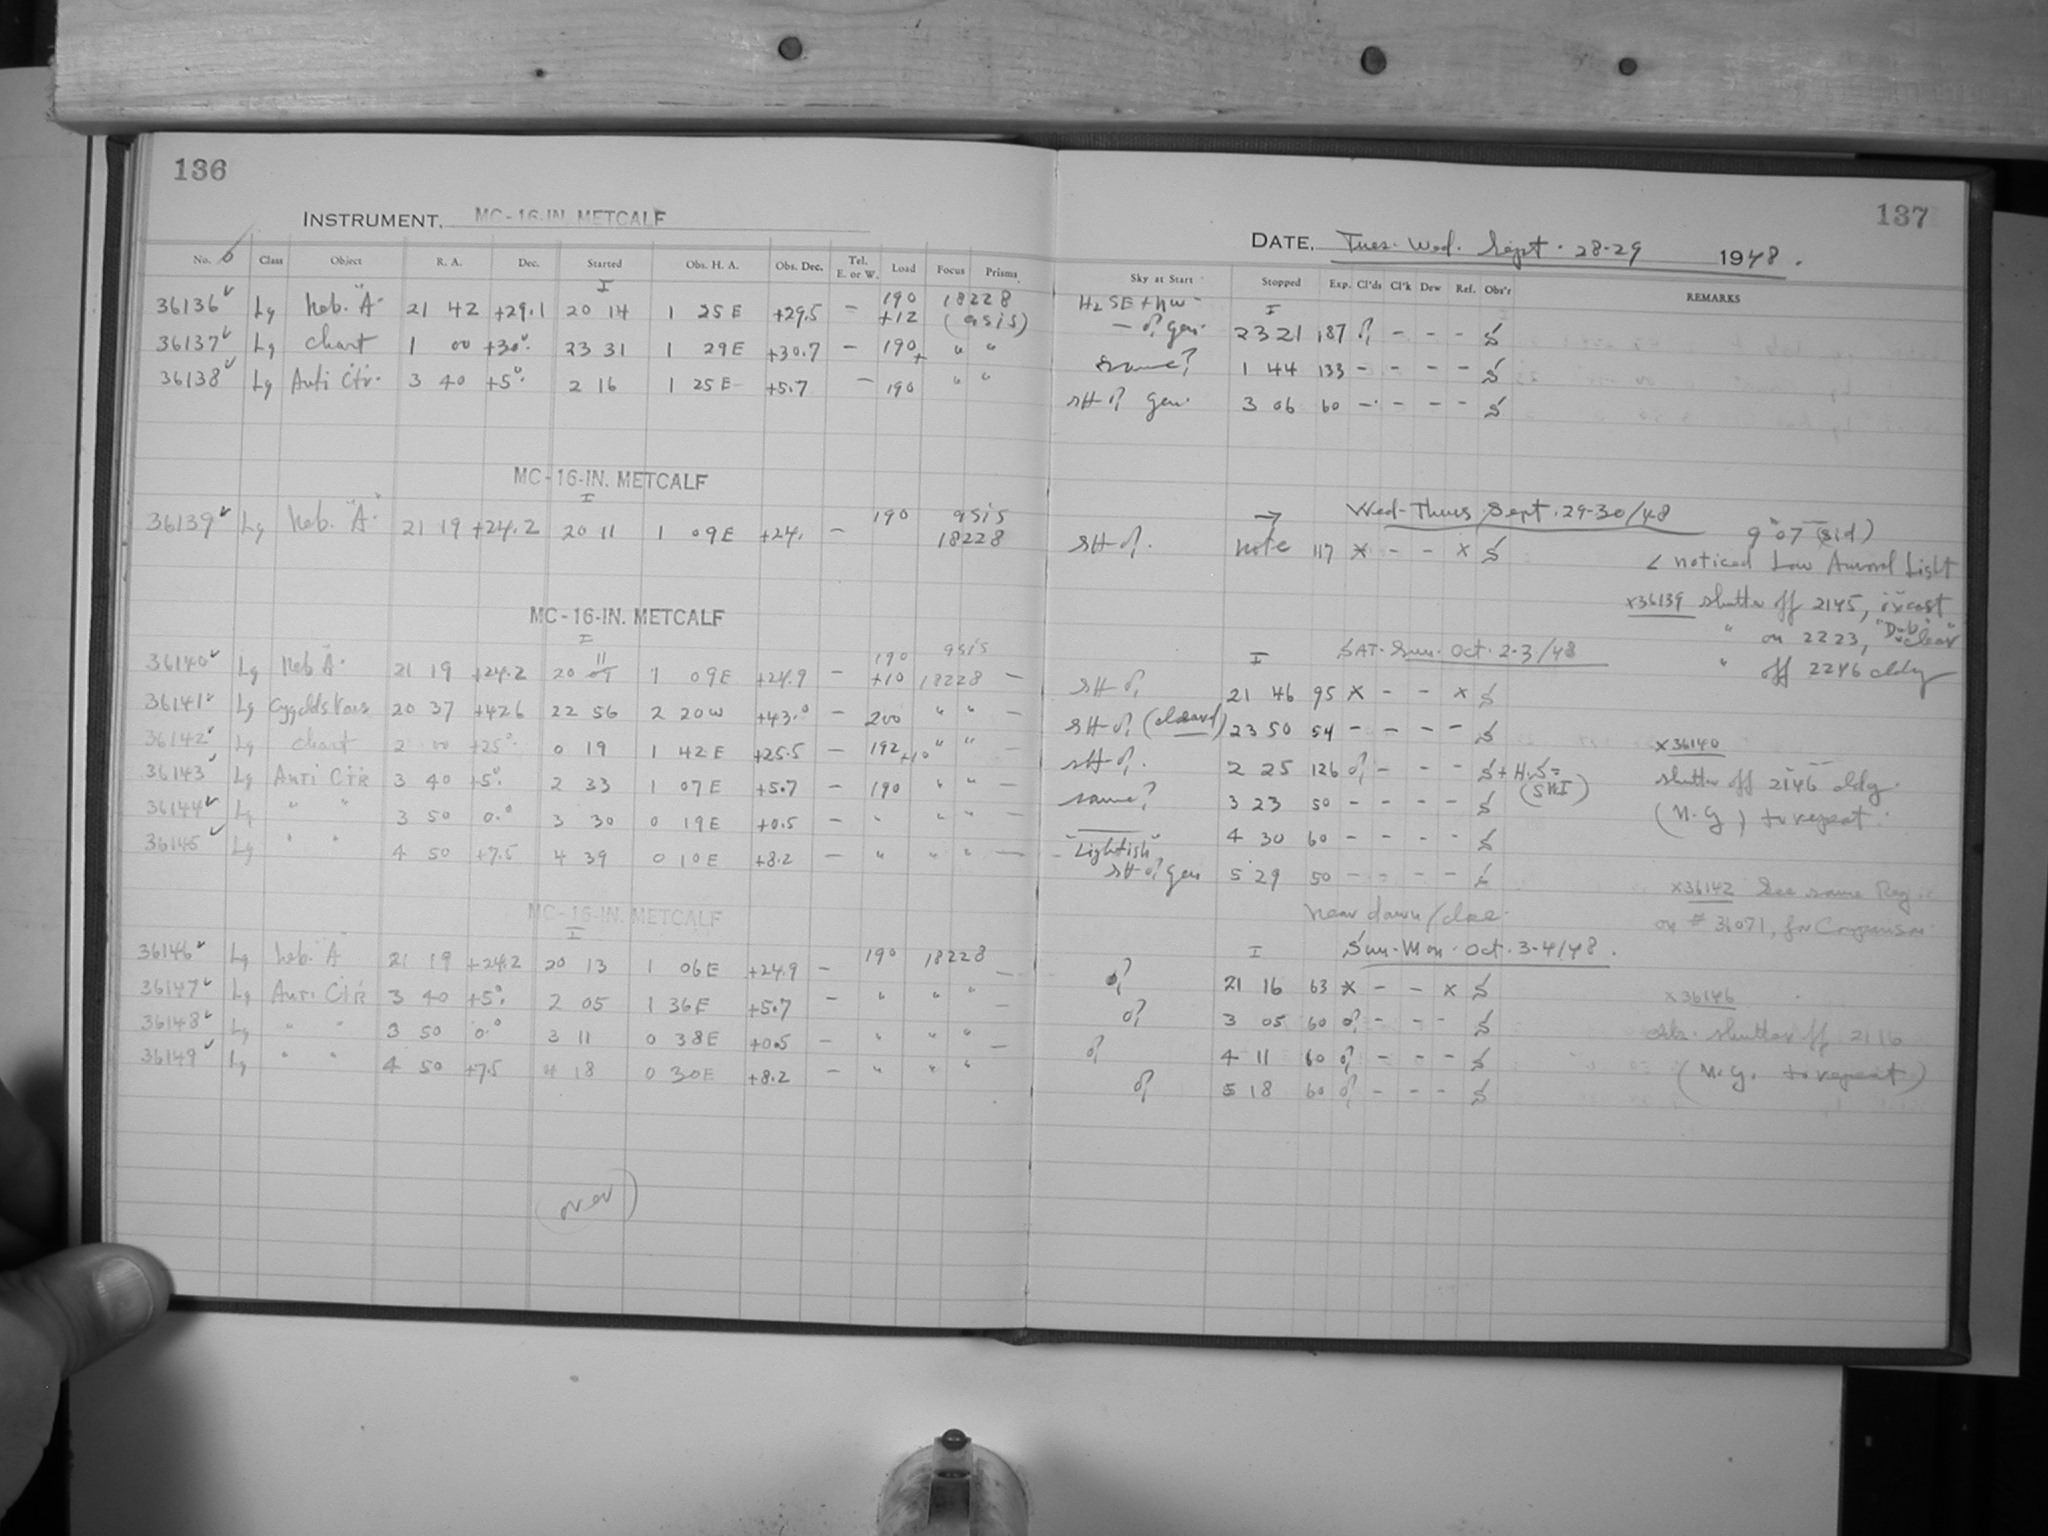 136
INSTRUMENT, MC-16-IN. METCALF
No. Class Object R. A. Dec. Started Obs. H. A. Obs. Dec. Tel. E. or W. Load Focus Prisms
I
36136 Lg Neb. "A" 21 42 +29.1 20 14 1 25 E +29.5 - 190 +12 18228 (asis)
36137 Lg Chart 1 00 +30°. 23 31 1 29 E +30.7 - 190+ " "
36138 Lg Anti Ctr. 3 40 +5°. 2 16 1 25 E +5.7 - 190 " "
MC-16-IN. METCALF
I
36139 Lg Neb. "A" 21 19 +24.2 20 11 1 09 E +24. - 190 asis 18228
MC-16-IN. METCALF
I
36140 Lg Neb "A" 21 19 +24.2 20 11 1 09 E +24.9 - 190 +10 asis 18228 -
36141 Lg 20 37 +42.6 22 56 2 20 W +43.° - 200 " " -
36142 Lg Chart 2 00 +25° 0 19 1 42 E +25.5 - 192 +10 " " -
36143 Lg Anti Ctr 3 40 +5°. 2 33 1 07 E +5.7 - 190 " " -
36144 Lg " " 3 50 0.° 3 30 0 19 E +0.5 - " " " -
36145 Lg " " 4 50 +7.5 4 39 0 10 E +8.2 - " " " -
MC-16-IN. METCALF
I
36146 Lg Neb. "A" 21 19 +24.2 20 13 1 06 E +24.9 - 190 18228
36147 Lg Anti Ctr 3 40 +5°. 2 05 1 36 E +5.7 - " " " -
36148 Lg " " 3 50 0.° 3 11 0 38 E +0.5 - " " "
36149 Lg " " 4 50 +7.5 4 18 0 30 E +8.2 - " " "
(over)
137
DATE, Tues. Wed. Sept. 28-29 1948.
Sky at Start Stopped Exp. Cl'ds Cl'k Dew Ref. Obs'r REMARKS
I
Hz SE + NW -
gen. 23 21 187 - - - S
same? 1 44 133 - - - - S
gen. 3 06 60 - - - - S
Wed-Thurs Sept. 29-30/48
note 117 x - - x S
9 07 (sid)
noticed Low Auroral Light
x36139 shutter off 2145,
" on 2223, "clear"
" off 2246 cldy
I SAT. Sun. Oct. 2-3/48
21 46 95 x - - x S
(cleared) 23 50 54 - - - - S
2 25 126 - - - S
same? 3 23 50 - - - - S
"Lightish" 4 30 60 - - - - S
gen 5 29 50 - - - - S
near dawn/
x36140
shutter off 2146 cldy.
(N.G) to repeat.
x36142 See same Reg.
on # 36071, for Comparison.
I Sun-Mon. Oct. 3-4/48.
21 16 63 x - - x S
3 05 60 - - - S
4 11 60 - - - S
5 18 60 - - - S
x36146
shutter off 2116
(N.G. to repeat)